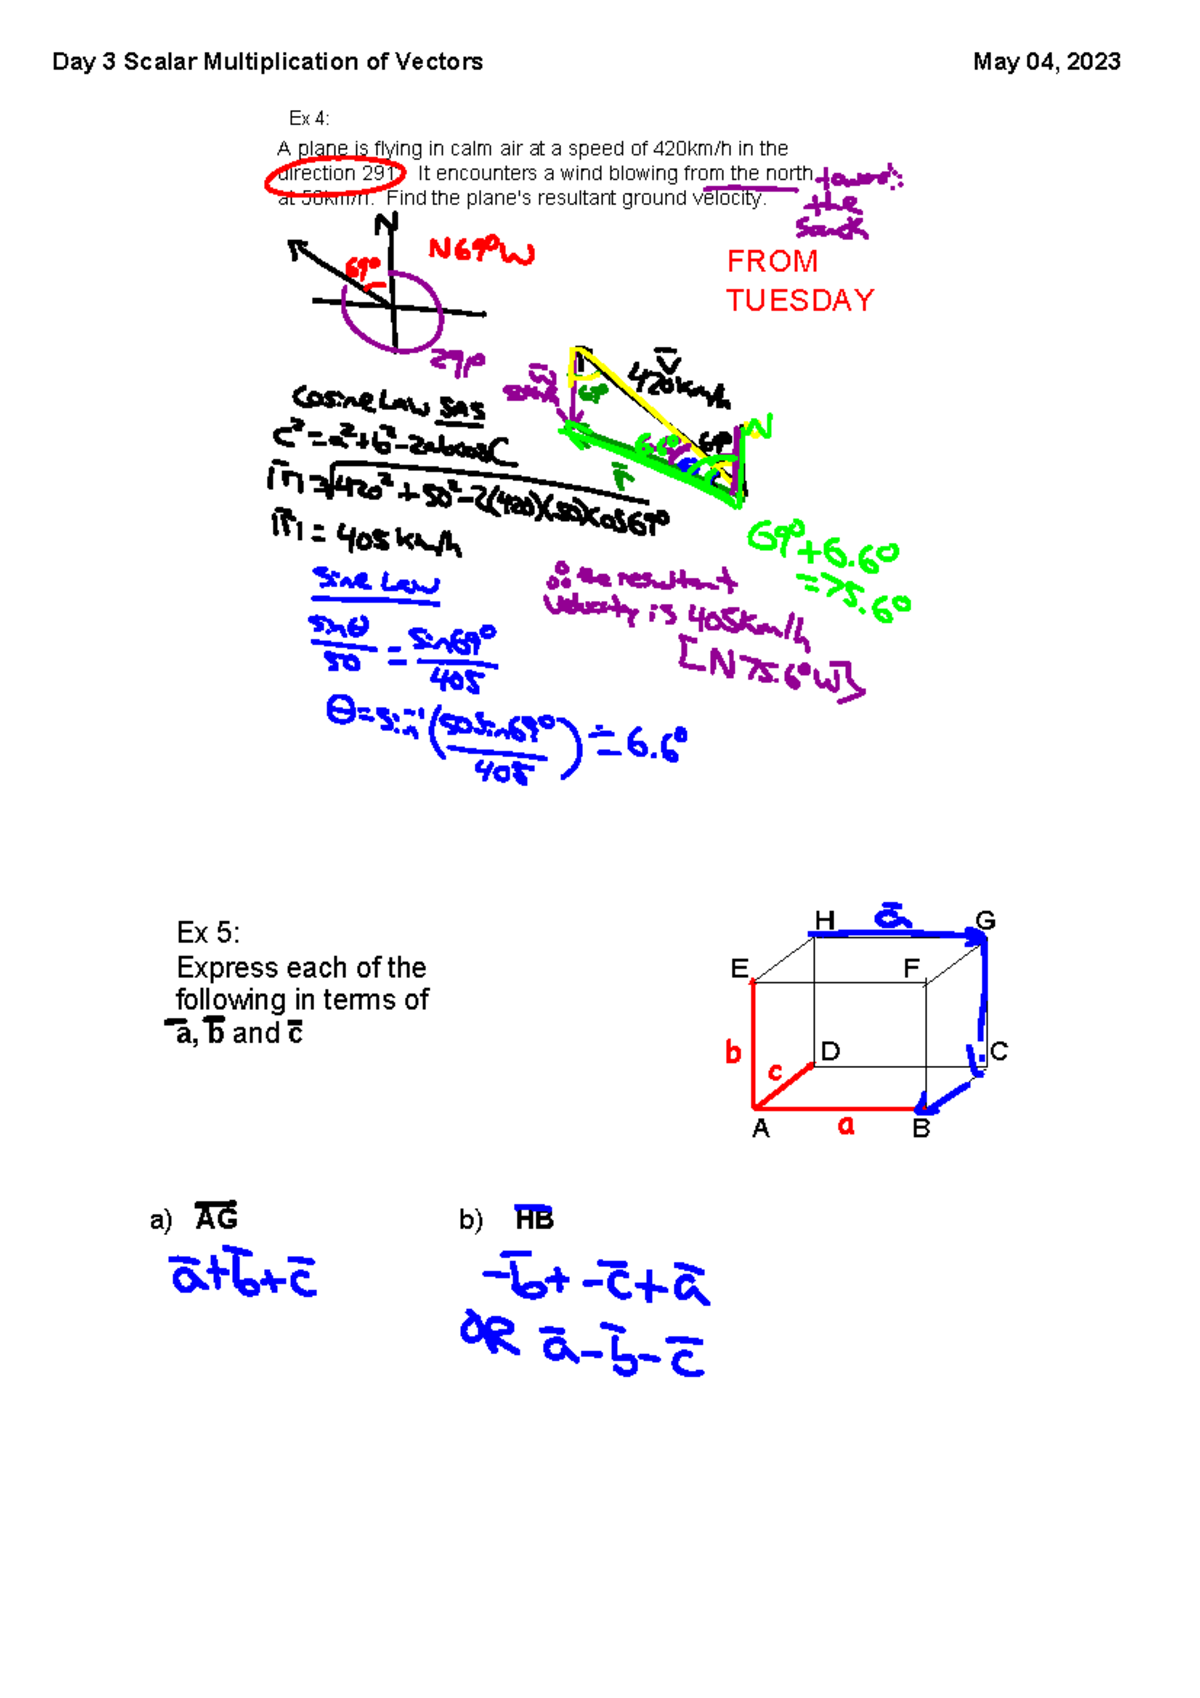 Day 3 Scalar Multiplication of Vectors May 04, 2023
Ex 4:
A plane is flying in calm air at a speed of 420km/h in the
direction 291. It encounters a wind blowing from the north towards
the
South
at 50km/h. Find the plane's resultant ground velocity.
N
N69°W
69°
291°
FROM
TUESDAY
w̅
50km/h
v̅
420km/h
69°
69°
N
6.6°
r̅
Cosine Law SAS
c² = a² + b² - 2abcosC
|r̅| = √420² + 50² - 2(420)(50)cos69°
|r̅| = 405 km/h
69° + 6.6°
= 75.6°
Sine Law
sinθ/50 = sin69°/405
θ = sin⁻¹(50sin69°/405) ≐ 6.6°
∴ the resultant
velocity is 405km/h
[N75.6°W]
Ex 5:
Express each of the
following in terms of
a̅, b̅ and c̅
H a̅ G
E F
b D C
c
A a B
a) A̅G̅
a̅+b̅+c̅
b) H̅B̅
-b̅+ -c̅+a̅
OR a̅-b̅-c̅